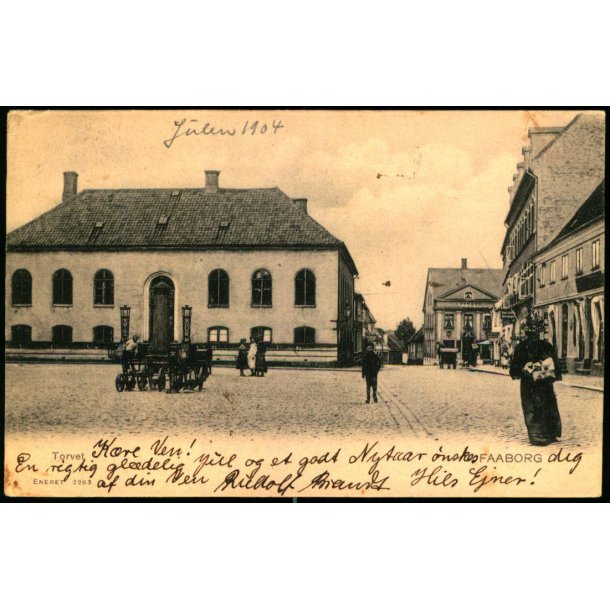 Julen 1904
Torvet. Kære Ven! FAABORG
En rigtig glædelig Jul og et godt Nytaar ønskes dig
ENERET 2263 af din Ven Rudolf Hils Ejner!